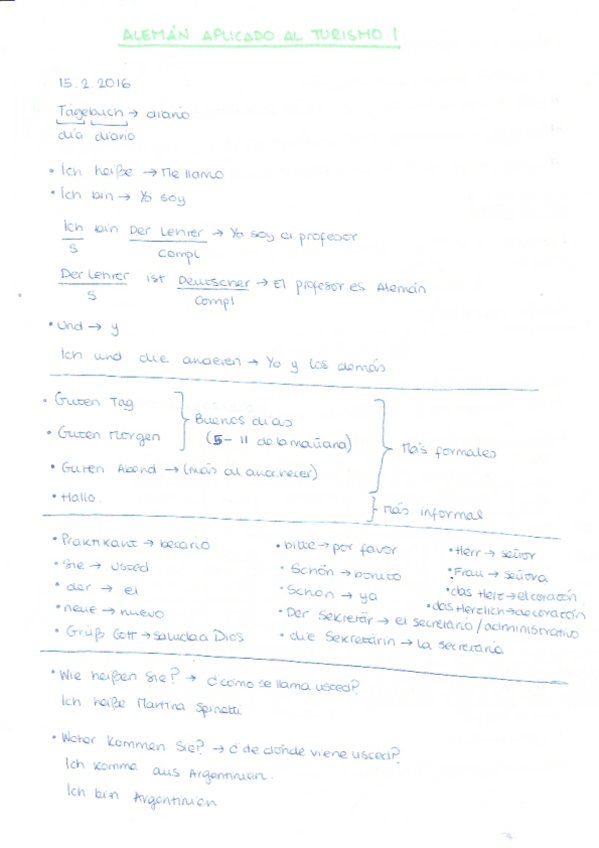 ALEMÁN APLICADO AL TURISMO I
15.2.2016
Tagebuch → diario
día diario
• Ich heiße → Me llamo
• Ich bin → Yo soy
Ich bin Der Lehrer → Yo soy el profesor
S compl
Der Lehrer ist Deutscher → El profesor es Alemán
S compl
• Und → y
Ich und die anderen → Yo y los demás
• Guten Tag
• Guten Morgen
Buenos días
(5 - 11 de la mañana)
• Guten Abend → (más al anochecer)
Más formales
• Hallo.
más informal
• Praktikant → becario
• Sie → usted
• der → el
• neue → nuevo
• Grüß Gott → saluda a Dios
• bitte → por favor
• Schön → bonito
• Schon → ya
• Der Sekretär → el secretario / administrativo
• die Sekretärin → la secretaria
• Herr → señor
• Frau → señora
• das Herz → el corazón
• das Herzlich → de corazón
• Wie heißen Sie? → ¿cómo se llama usted?
Ich heiße Martina Spinetti
• Woher kommen Sie? → ¿de dónde viene usted?
Ich komme aus Argentinien.
Ich bin Argentinien